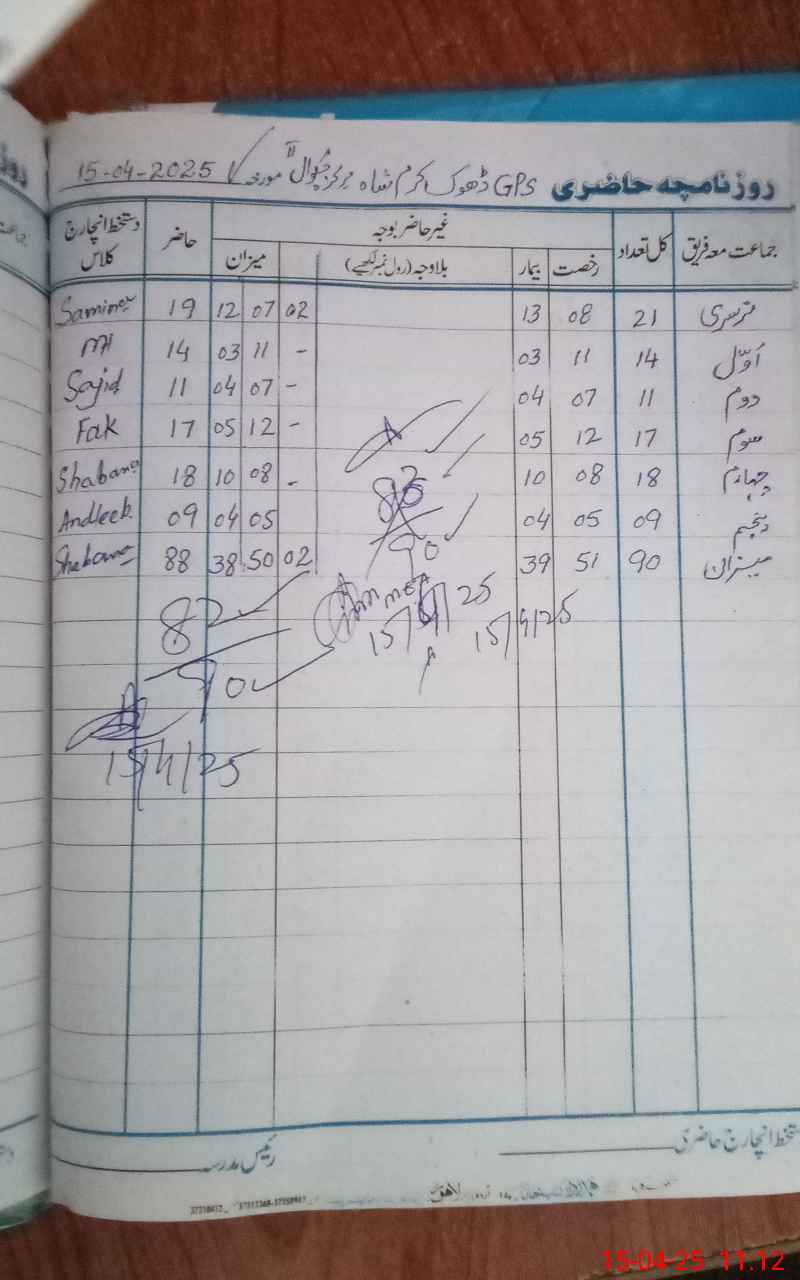 روزنامچہ حاضری GPS ڈھوک اکرم شاہ مرکز چکوال مورخہ 15-04-2025
جماعت معہ فریق کل تعداد غیر حاضر بوجہ حاضر دستخط انچارج کلاس
رخصت بیمار بلاوجہ (رول نمبر لکھیے) میزان
نرسری 21 08 13 02 07 12 19 Samina
اوّل 14 11 03 - 11 03 14
دوم 11 07 04 - 07 04 11 Sajid
سوم 17 12 05 - 12 05 17 Fak
چہارم 18 08 10 - 08 10 18 Shabana
پنجم 09 05 04 05 04 09 Andleeb
میزان 90 51 39 02 50 38 88 Shabana
90
82
15/4/25
15/4/25
90
15/4/25
دستخط انچارج حاضری
رئیس مدرسہ
15-04-25 11.12